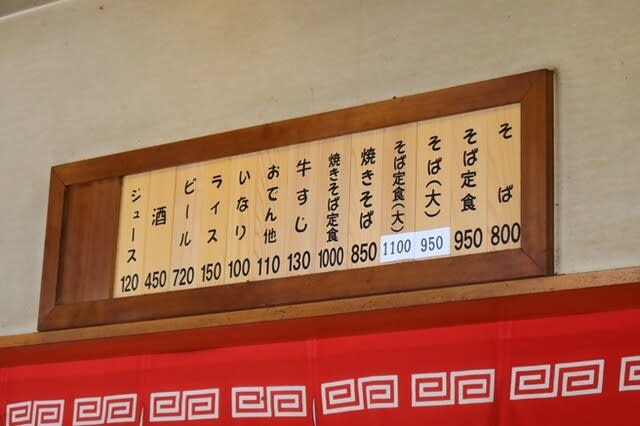 そば 800
そば定食 950
そば(大) 950
そば定食(大) 1100
焼きそば 850
焼きそば定食 1000
牛すじ 130
おでん他 110
いなり 100
ライス 150
ビール 720
酒 450
ジュース 120